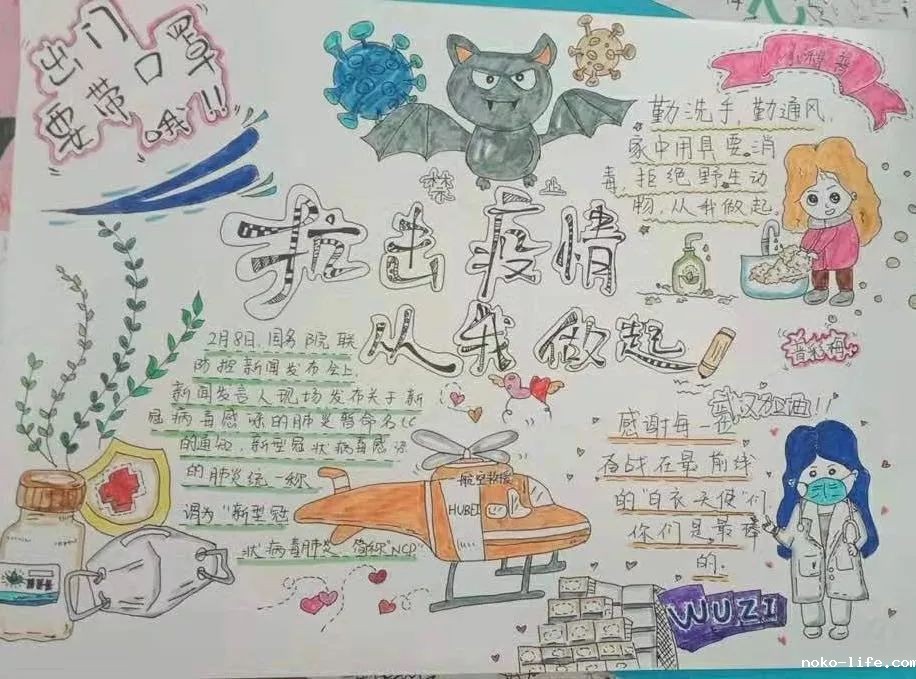 出门
要带口罩
哦!!
小科普
勤洗手,勤通风,
家中用具要消
毒,拒绝野生动
物,从我做起
禁 止
抗击疫情
从我做起
2月8日,国务院联
防控新闻发布会上,
新闻发言人现场发布关于新
冠病毒感染的肺炎暂命名
的通知,新型冠状病毒感染
的肺炎统一称
谓为“新型冠
状病毒肺炎,简称“NCP”
航空救援
HUBEI
武汉加油!!
感谢每一位
奋战在最前线
的“白衣天使”们
你们是最棒
的.
WUZI
noko-life.com